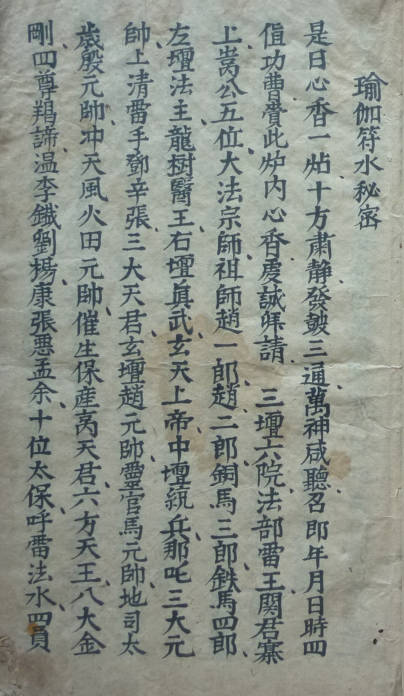 瑜伽符水秘密
是日心香一炷十方肅静發皷三通萬神咸聽召即年月日時四
值功曹賫此炉内心香虔誠拜請　三壇六院法部雷王関君寨
上萵公五位大法宗師祖師趙一郎趙二郎銅馬三郎鉄馬四郎
左壇法主龍樹醫王右壇眞武玄天上帝中壇統兵那吒三大元
帥上清雷手鄧辛張三大天君玄壇趙元帥靈官馬元帥地司太
歲殷元帥冲天風火田元帥催生保産高天君六方天王八大金
剛四尊羯諦温李鐵劉楊康張悪孟余十位太保呼雷法水四員